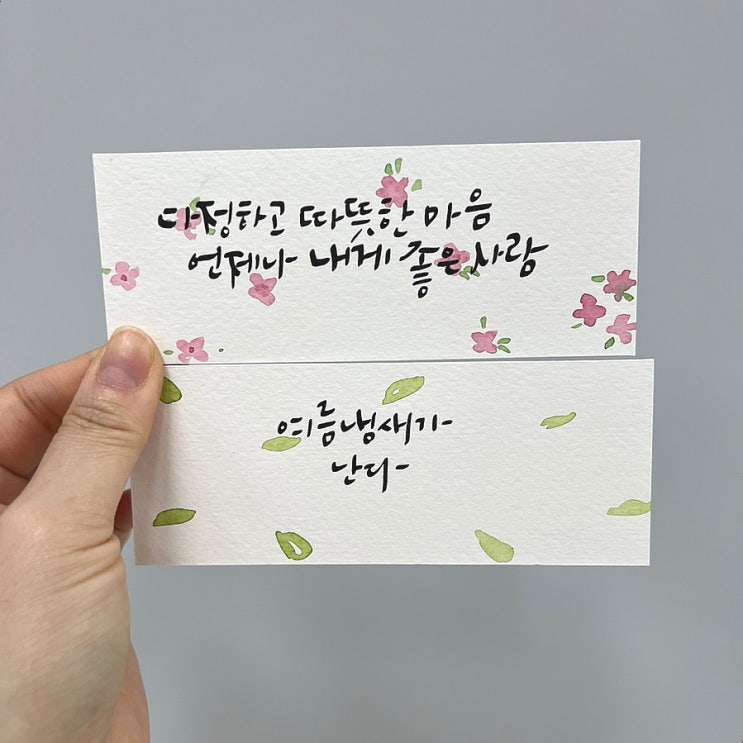 다정하고 따뜻한 마음
언제나 내게 좋은 사랑
여름냄새가
난다